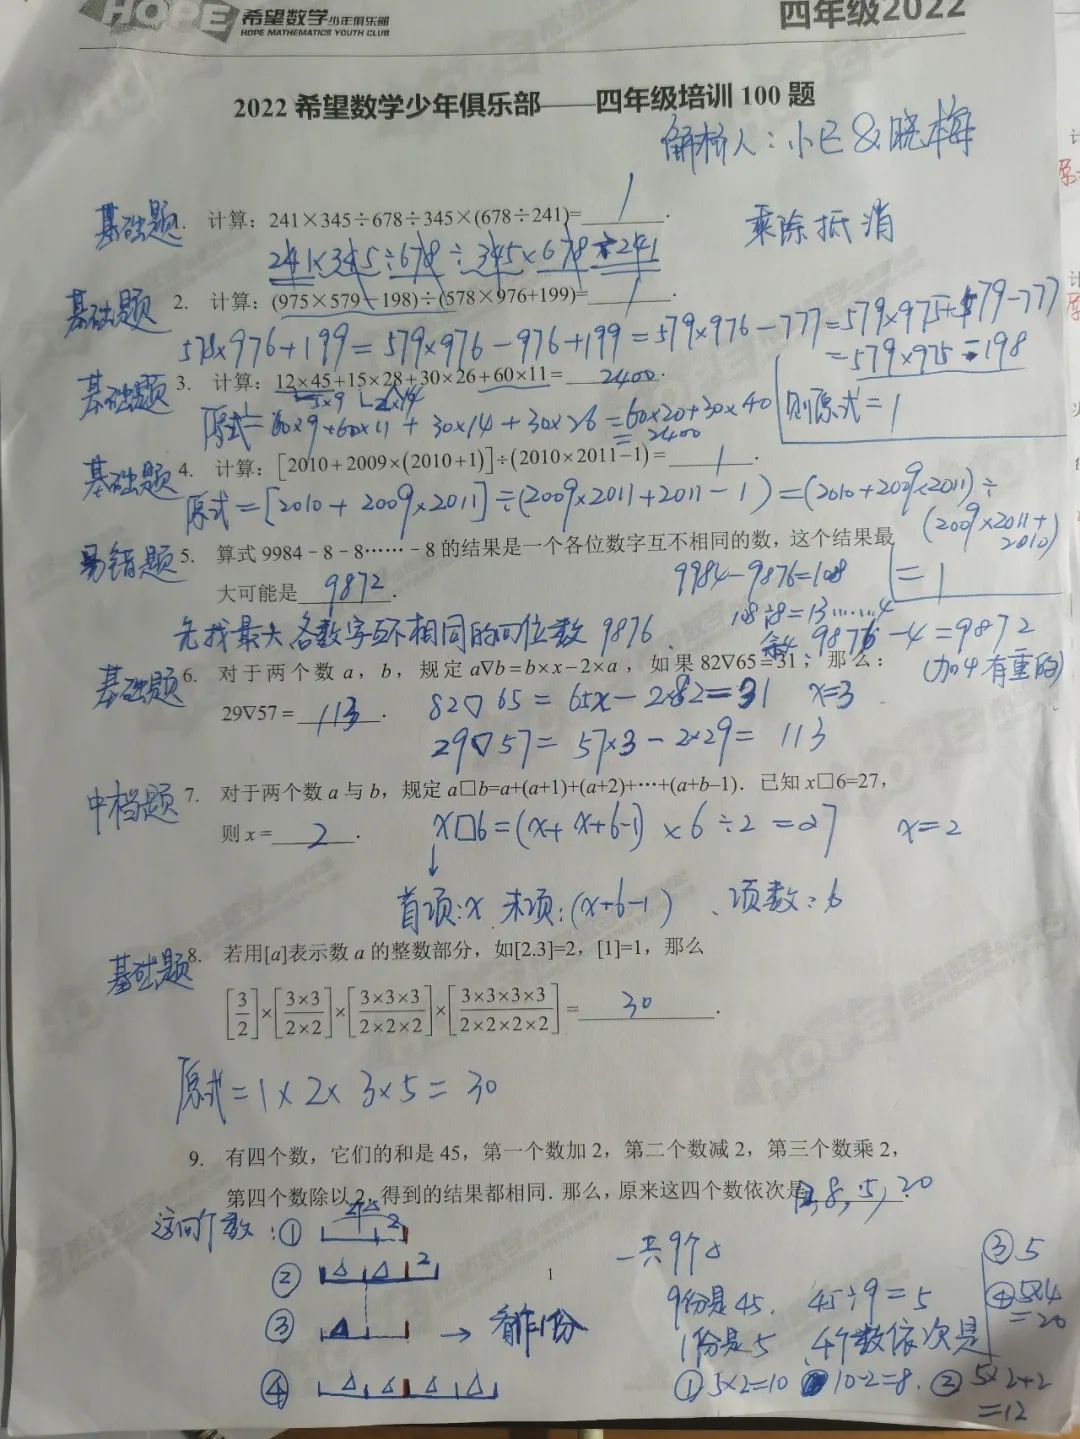 HOPE 希望数学少年俱乐部
HOPE MATHEMATICS YOUTH CLUB
四年级2022
2022 希望数学少年俱乐部——四年级培训 100 题
解析人：小巳&晓梅
基础题 1. 计算：241×345÷678÷345×(678÷241)=1.
乘除抵消
241×345÷678÷345×678÷241
基础题 2. 计算：(975×579－198)÷(578×976+199)=1.
578×976+199=579×976－976+199=579×976－777=579×975+579-777
=579×975-198
则原式=1
基础题 3. 计算：12×45+15×28+30×26+60×11=2400.
5×9 2×14
原式=60×9+60×11+30×14+30×26=60×20+30×40
=2400
基础题 4. 计算：[2010+2009×(2010+1)]÷(2010×2011−1)=1.
原式=[2010+2009×2011]÷(2009×2011+2011-1)=(2010+2009×2011)÷
(2009×2011+2010)
=1
易错题 5. 算式 9984﹣8﹣8……﹣8 的结果是一个各位数字互不相同的数，这个结果最
大可能是9872.
9984-9876=108
108÷8=13……4
先找最大各数字互不相同的四位数 9876.
9876-4=9872
(加4有重的)
基础题 6. 对于两个数 a，b，规定 a∇b=b×x−2×a，如果 82∇65=31；那么：
29∇57=113.
82▽65=65x-2×82=31 x=3
29▽57=57×3-2×29=113
中档题 7. 对于两个数 a 与 b，规定 a□b=a+(a+1)+(a+2)+…+(a+b–1)．已知 x□6=27，
则 x=2.
x□6=(x+x+6-1)×6÷2=27 x=2
首项:x 末项:(x+6-1)、项数:6
基础题 8. 若用[a]表示数 a 的整数部分，如[2.3]=2，[1]=1，那么
[3/2]×[3×3/2×2]×[3×3×3/2×2×2]×[3×3×3×3/2×2×2×2]=30.
原式=1×2×3×5=30
9. 有四个数，它们的和是 45，第一个数加 2，第二个数减 2，第三个数乘 2，
第四个数除以 2，得到的结果都相同．那么，原来这四个数依次是,8,5,20
这四个数：①
2
② △ △ 2
③ △ → 看作1份
④ △ △ △ △
1
一共9个△
9份是45. 45÷9=5
1份是5 4个数依次是
①5×2=10 10-2=8. ②5×2+2
=12
③5
④5×4
=20